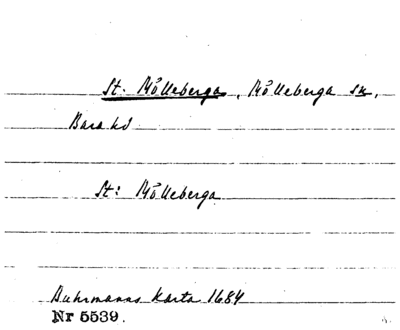 St. Mölleberga, Mölleberga sn,
Bara hd
St: Mölleberga
Buhrmanns Karta 1684
Nr 5539.